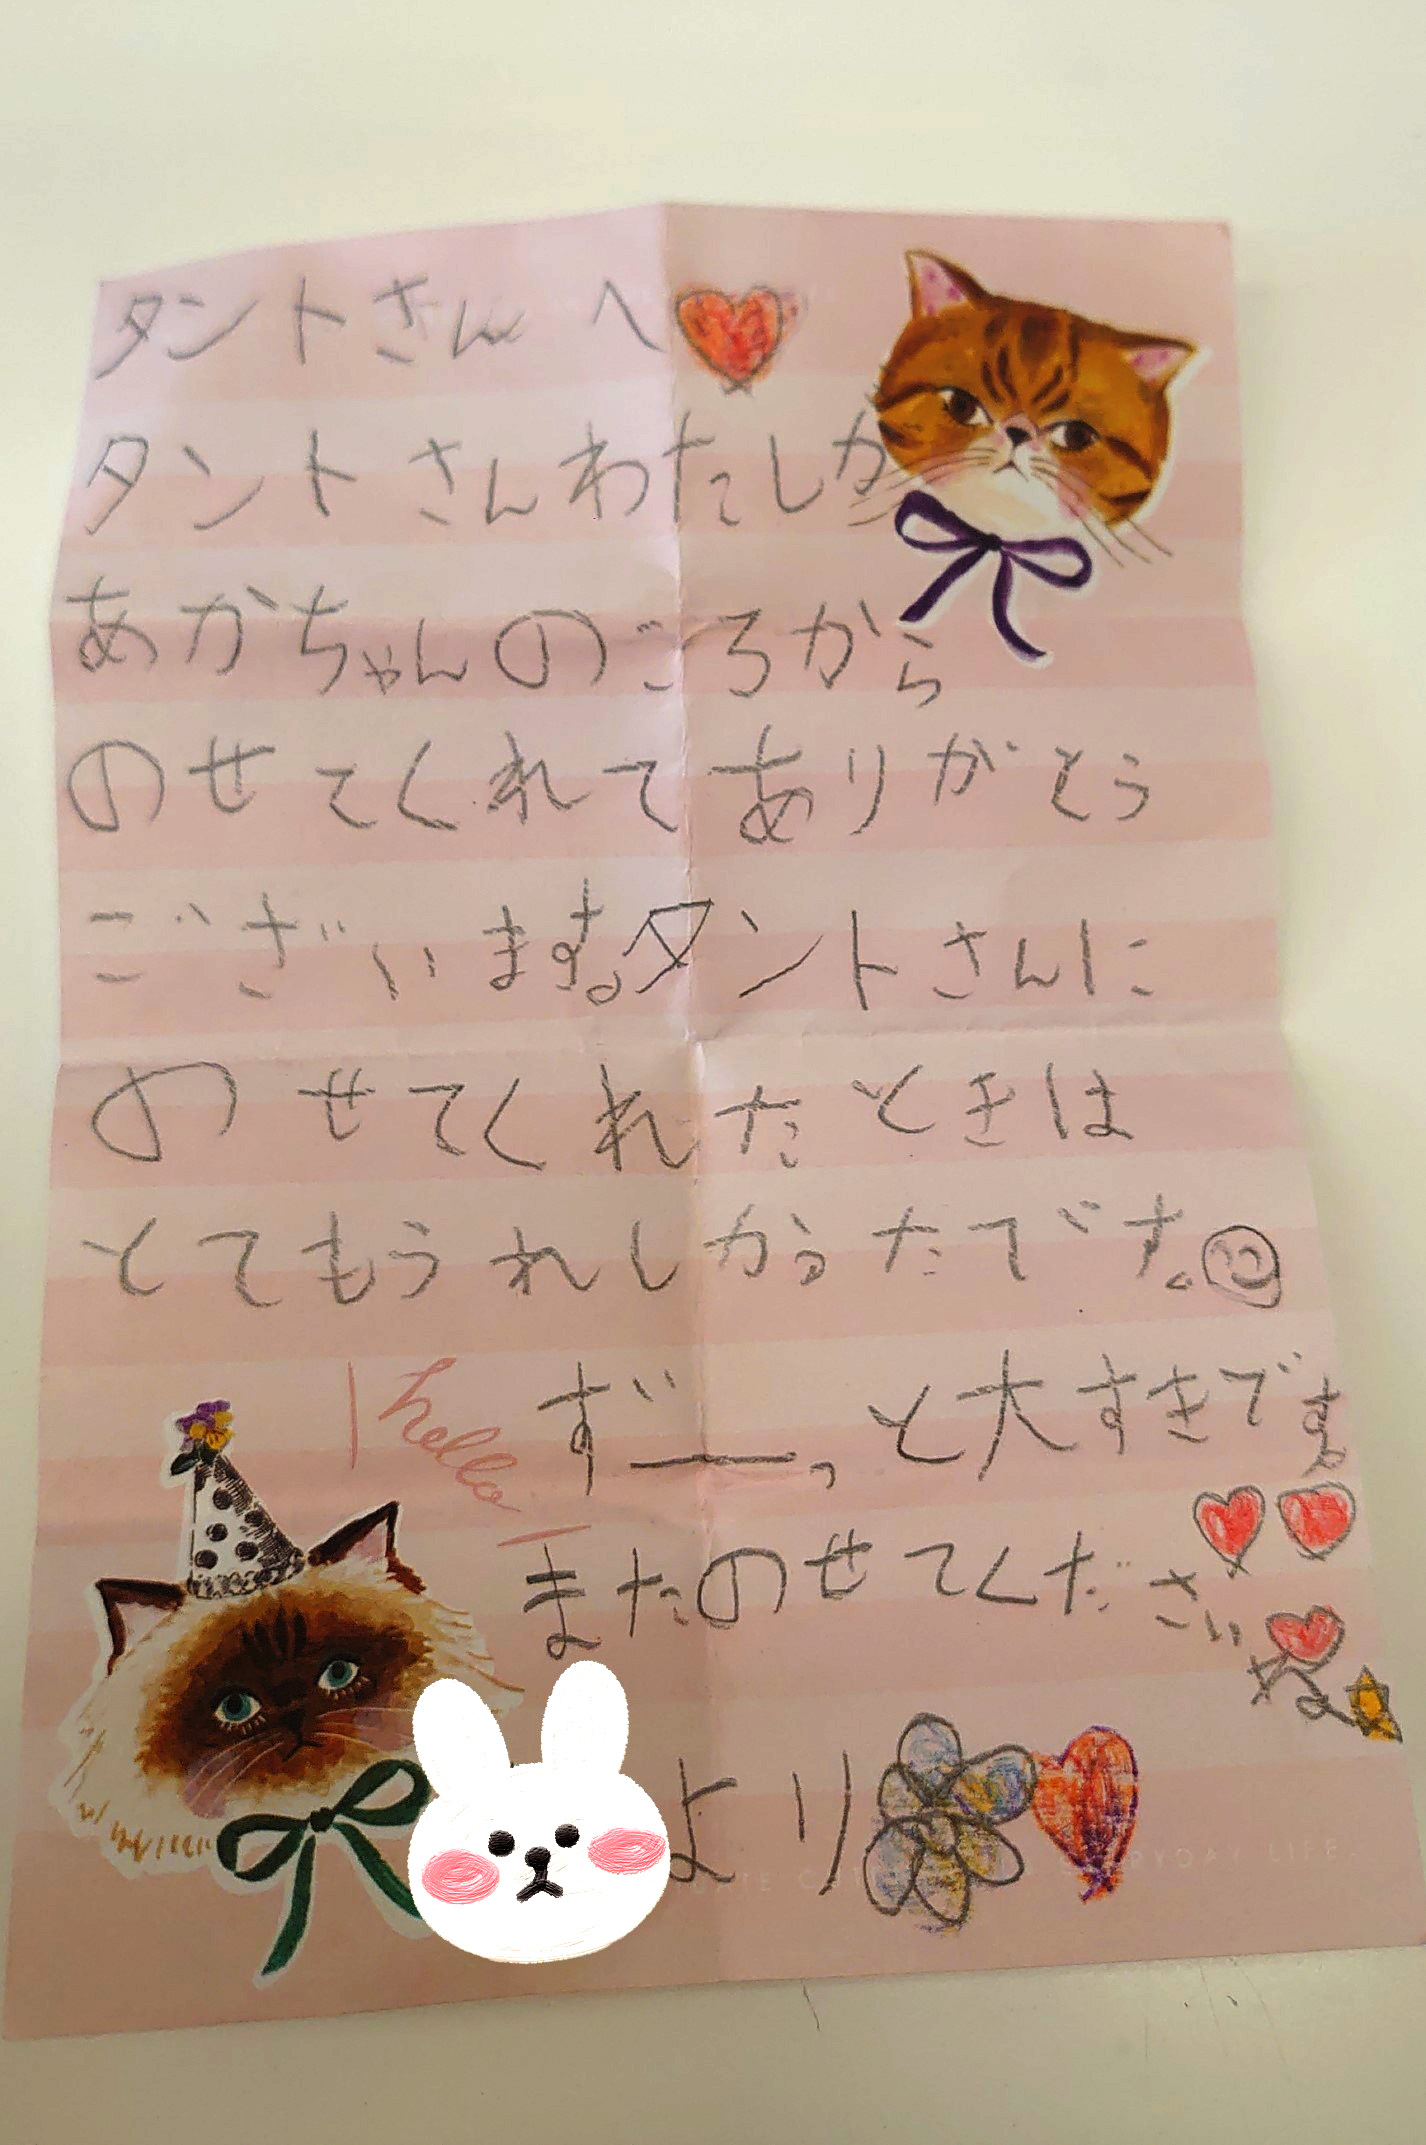 タントさんへ
タントさんわたしが
あかちゃんのころから
のせてくれてありがとう
ございます。タントさんに
のせてくれたときは
とてもうれしかったです。
hello
ずーっと大すきです
またのせてくださいね
より
EVERYDAY LIFE